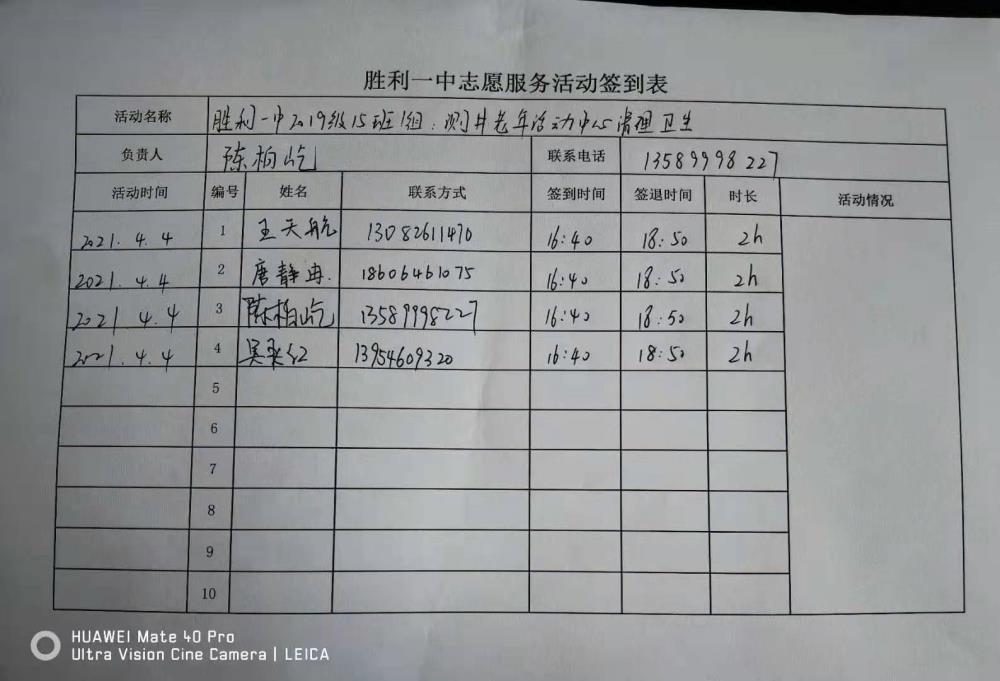 胜利一中志愿服务活动签到表
活动名称 胜利一中2019级15班1组:测井老年活动中心清理卫生
负责人 陈柏屹 联系电话 13589998227
活动时间 编号 姓名 联系方式 签到时间 签退时间 时长 活动情况
2021.4.4 1 王天航 13082611470 16:40 18:50 2h
2021.4.4 2 唐静冉. 18606461075 16:40 18:50 2h
2021 4.4 3 陈柏屹 13589998227 16:40 18:50 2h
2021.4.4 4 13954609320 16:40 18:50 2h
5
6
7
8
9
10
HUAWEI Mate 40 Pro
Ultra Vision Cine Camera | LEICA